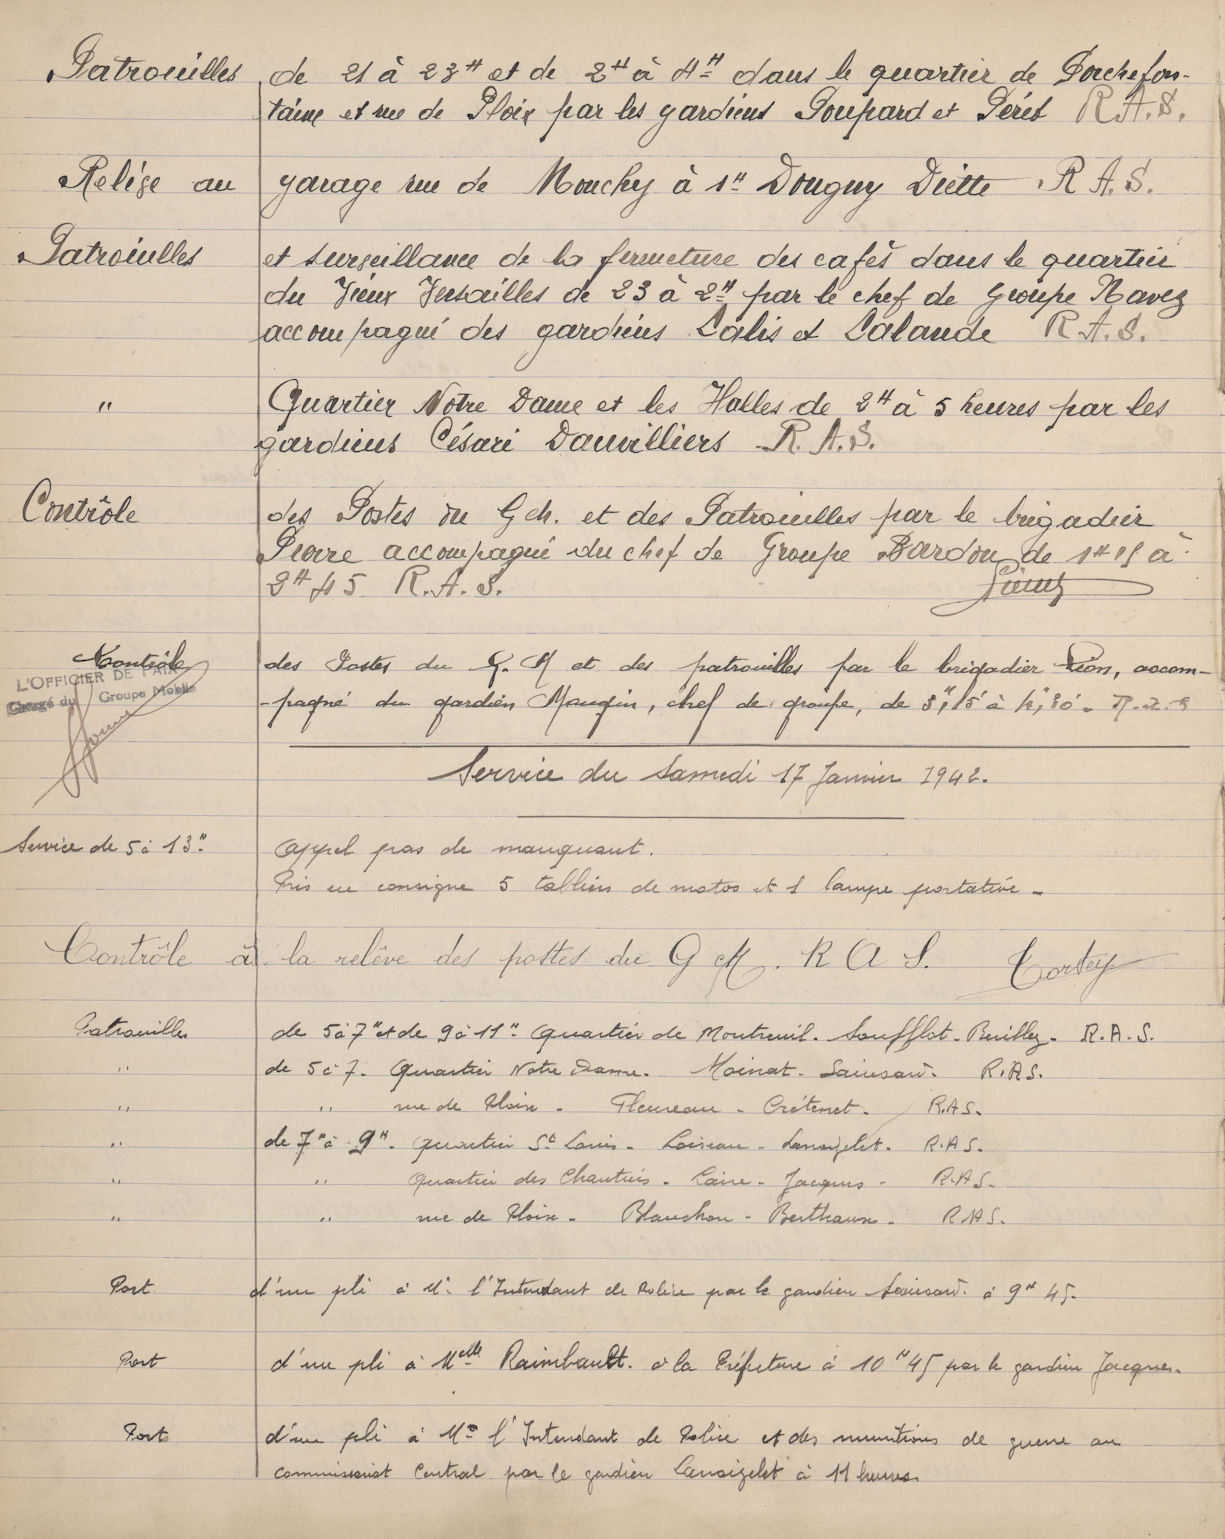 Patrouilles de 21 à 23H et de 2H à 4H dans le quartier de Porchefon-
taine et rue de Ploix par les gardiens Poupard et Péret R.A.S.
Relève au garage rue de Mouchy à 1H Dougny Diette R.A.S.
Patrouilles et surveillance de la fermeture des cafés dans le quartier
du Vieux Versailles de 23 à 2H par le chef de Groupe Navez
accompagné des gardiens Lalis et Lalande R.A.S.
" Quartier Notre Dame et les Halles de 2H à 5 heures par les
gardiens Césari Dauvilliers R.A.S.
Contrôle des Postes du G.M. et des Patrouilles par le brigadier
Pierre accompagné du chef de Groupe Bardou de 1H15 à
2H45 R.A.S.
Contrôle des Postes du G.M et des patrouilles par le brigadier Pion, accom-
L'OFFICIER DE PAIX
Chargé du Groupe Mobile
-pagné du gardien Maugin, chef de groupe, de 3H,15 à 4H,30. R.A.S
Service du Samedi 17 Janvier 1942.
Service de 5 à 13H Appel pas de manquant.
Pris en consigne 5 tabliers de motos et 1 lampe portative.
Contrôle à la relêve des postes du G M. R A S. Tortey
Patrouilles de 5 à 7H et de 9 à 11H Quartier de Montreuil. Soufflot. R.A.S.
" de 5 à 7. Quartier Notre Dame. Moinat. R.A.S.
" " rue de Ploix. Fleureau. Crétenet. R.A.S.
" de 7H à 9H. Quartier St Louis. Loiseau. Lanoizelet. R.A.S.
" " Quartier des Chantiers. Laine. Jacques. R.A.S.
" " rue de Ploix. Blanchon. Berthaux. R.A.S.
Port d'un pli à Mr. l'Intendant de Police par le gardien à 9H 45.
Port d'un pli à Melle Raimbault. à la Préfecture à 10H45 par le gardien Jacques.
Port d'un pli à Mr l'Intendant de Police et des munitions de guerre au
commissariat Central par le gardien Lanoizelet à 11 heures.